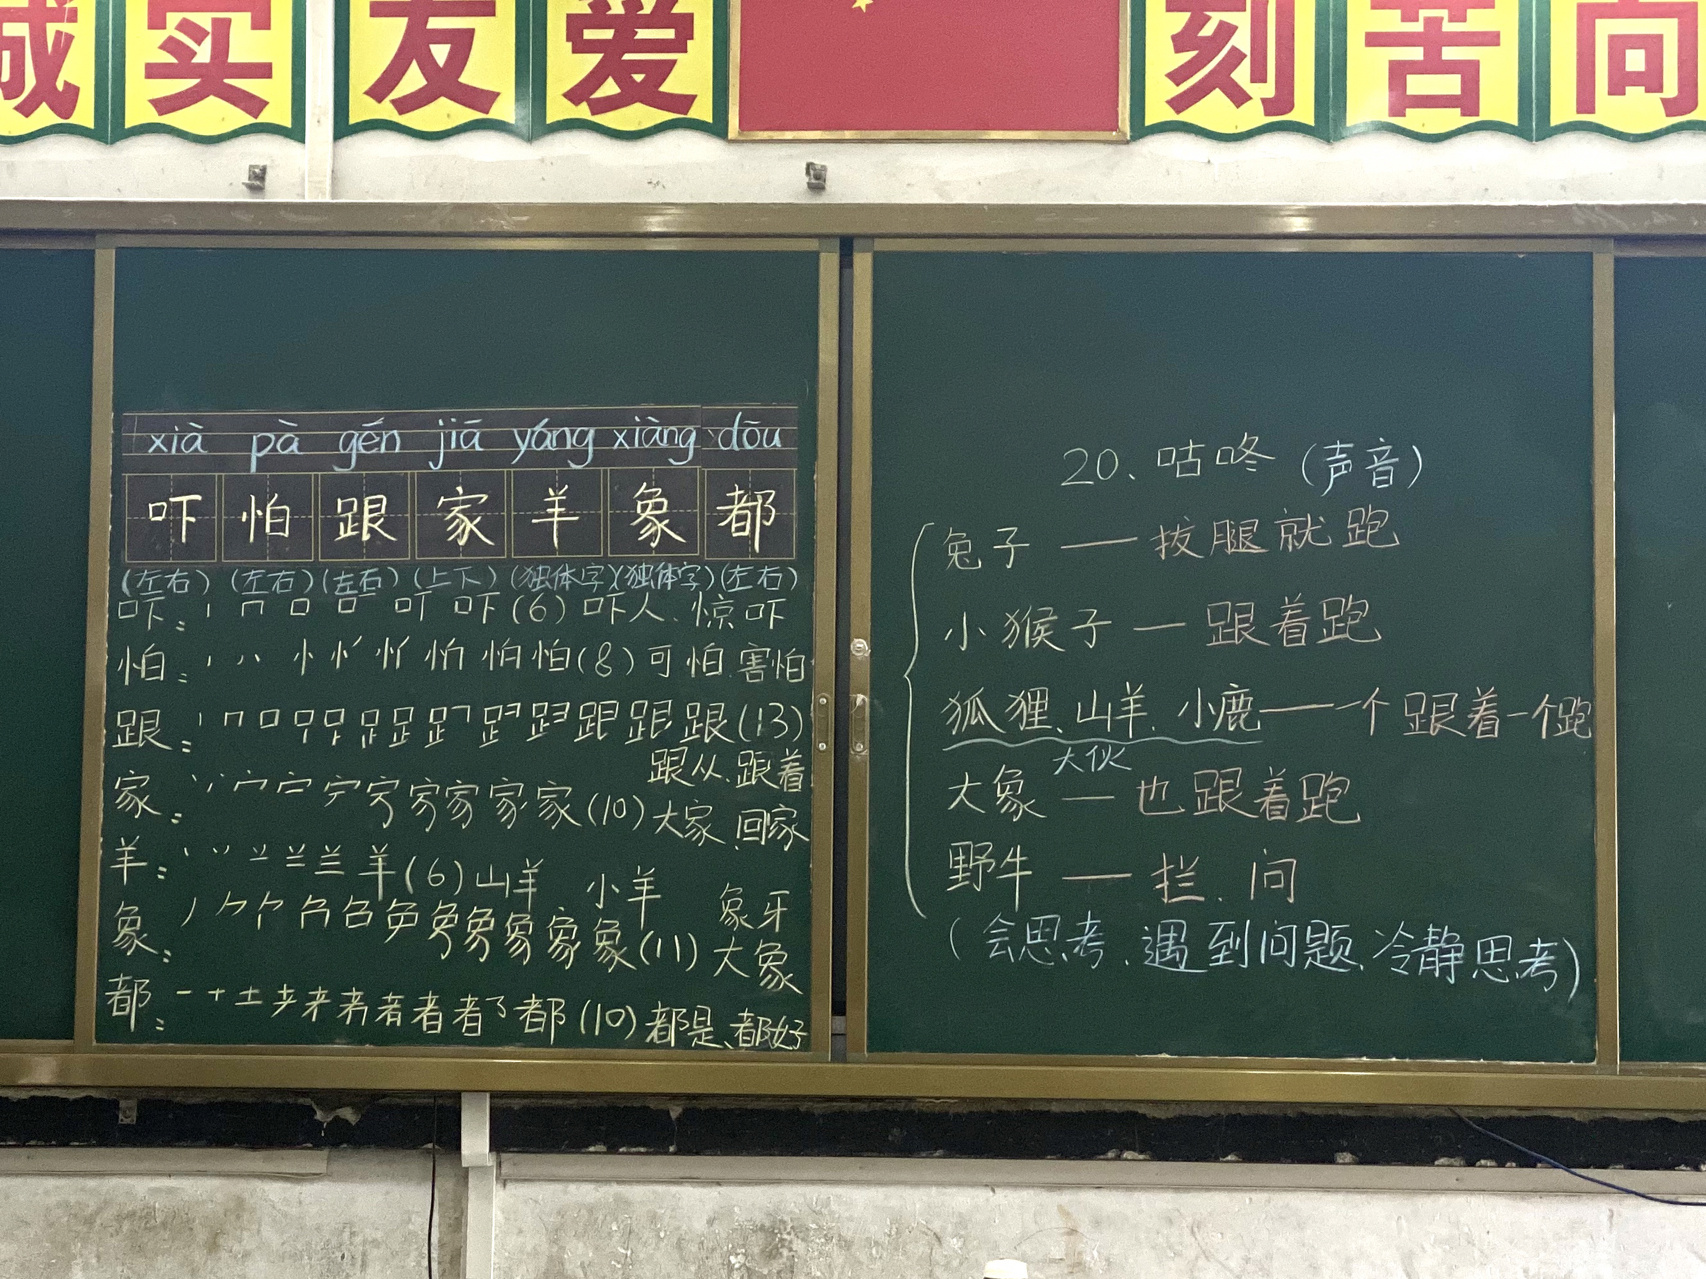 诚实友爱 刻苦向
xià pà gēn jiā yáng xiàng dōu
吓 怕 跟 家 羊 象 都
(左右) (左右) (左右) (上下) (独体字) (独体字) (左右)
吓: 丨 口 吓 (6) 吓人、惊吓
怕: 丶 忄 怕 (8) 可怕、害怕
跟: 丨 口 跟 (13)
跟从、跟着
家: 丶 宀 家 (10) 大家、回家
羊: 丶 羊 (6) 山羊 小羊
象: 丿 象 (11) 象牙
大象
都: 一 十 土 者 都 (10) 都是、都好
20、咕咚 (声音)
兔子 —— 拔腿就跑
小猴子 — 跟着跑
狐狸、山羊、小鹿 —— 一个跟着一个跑
大伙
大象 — 也跟着跑
野牛 —— 拦、问
(会思考、遇到问题、冷静思考)